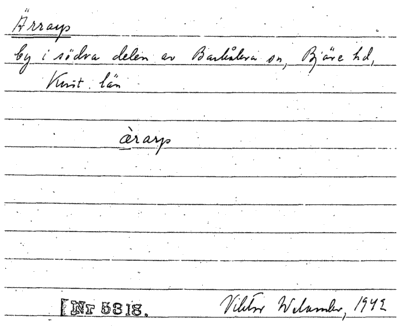 Ärrarp
by i södra delen av Barkåkra sn, Bjäre hd,
Krist. län
ärarp
[Nr 5818.
Viktor Welander, 1942